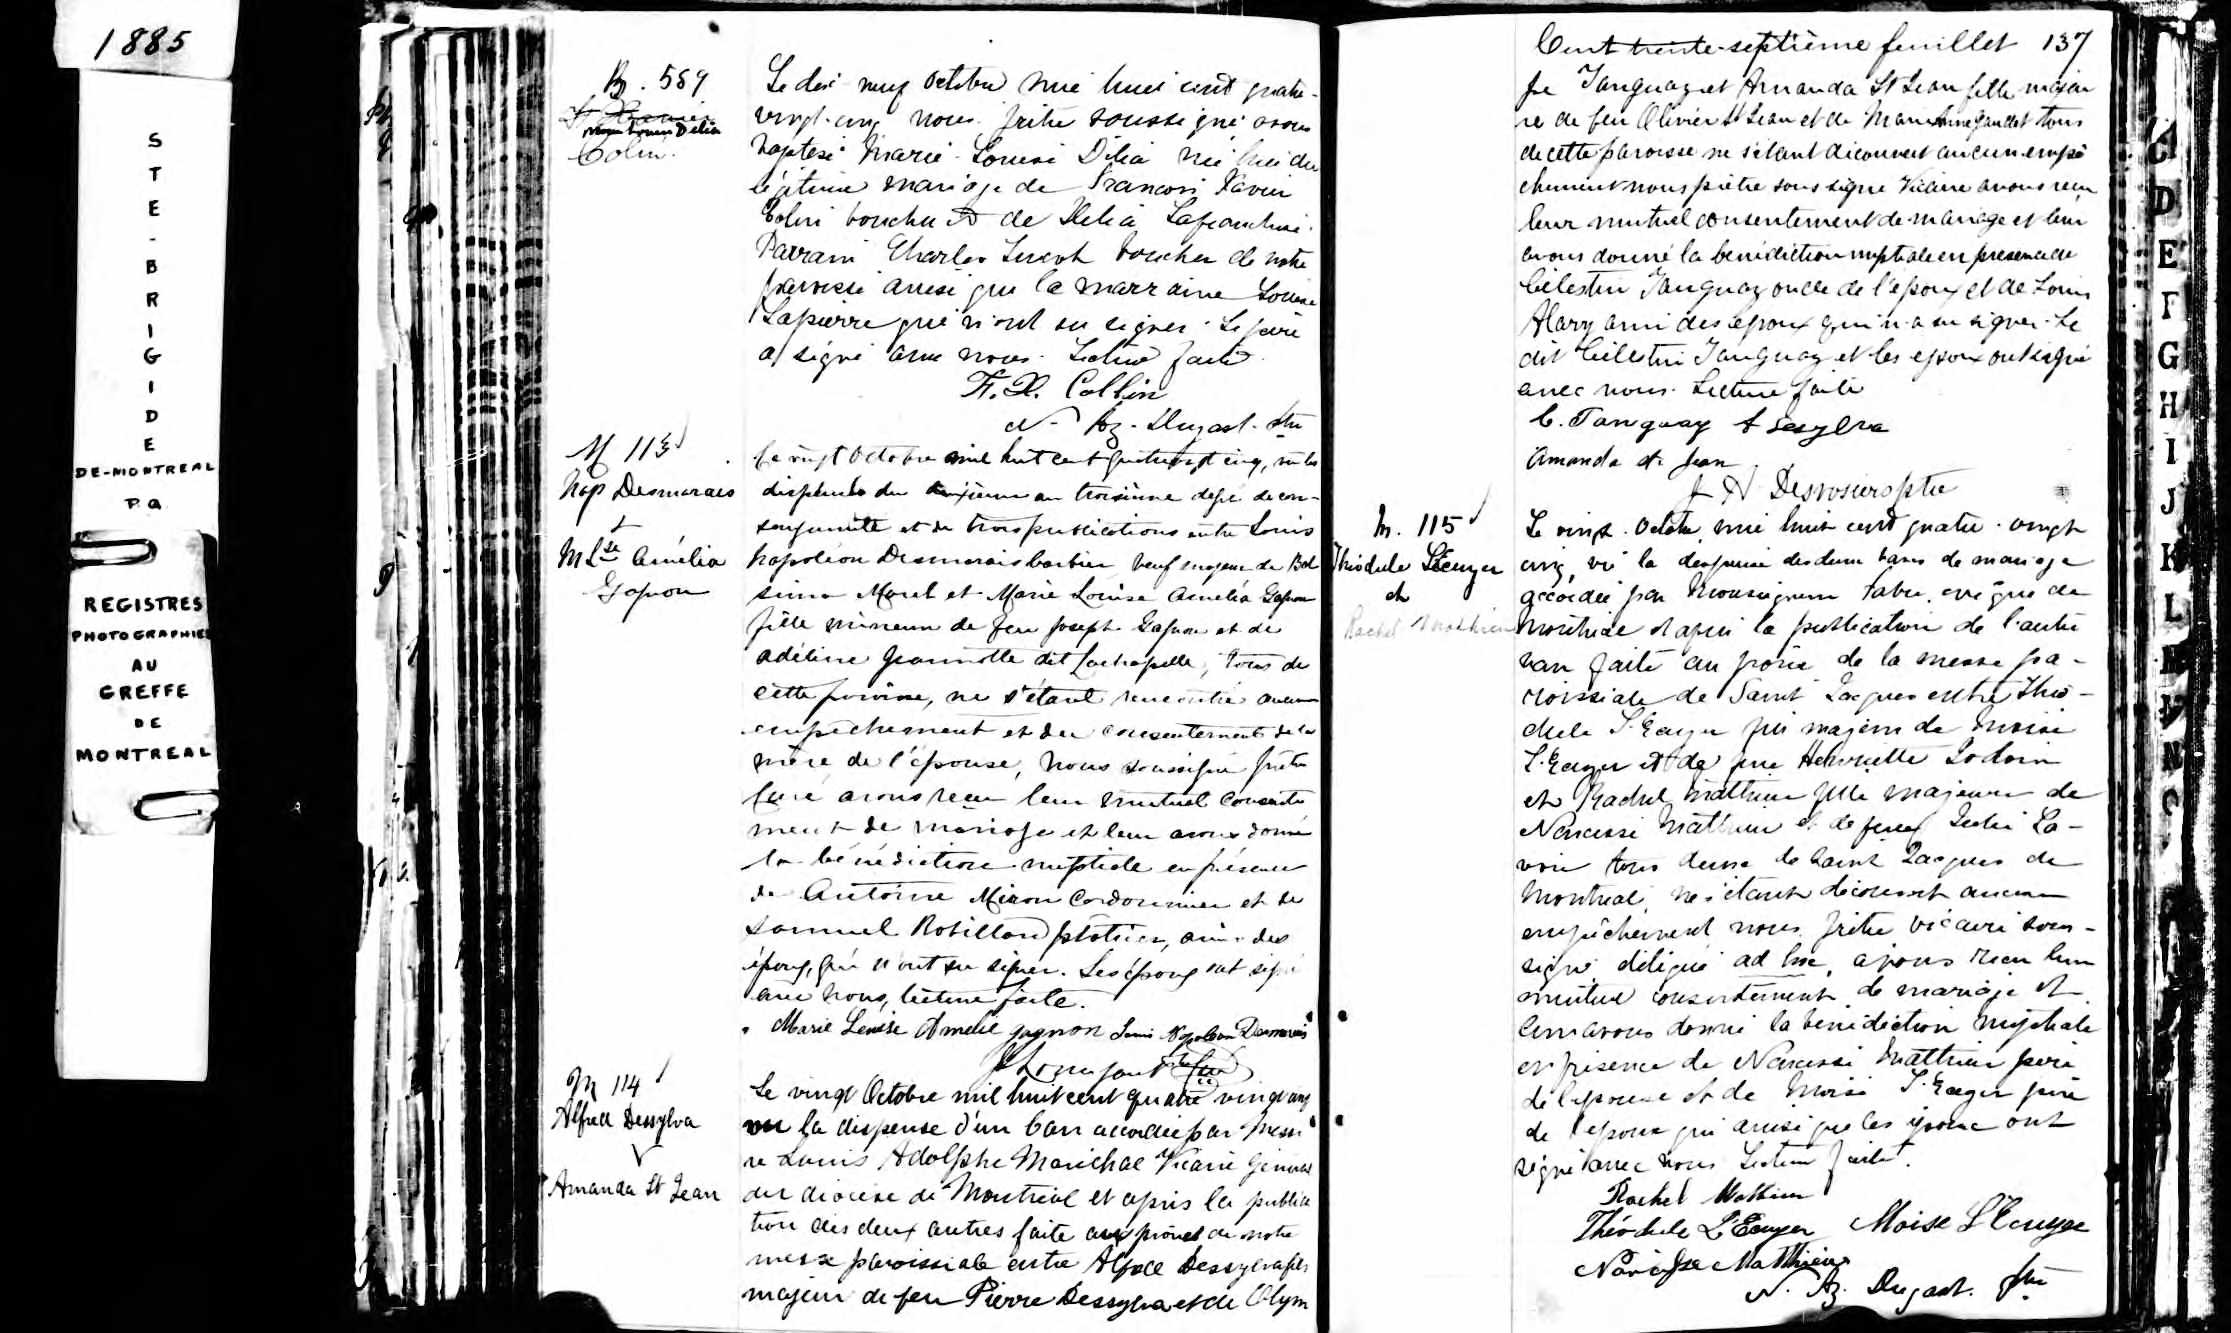 1885
STE-BRIGIDE
DE-MONTREAL
P.Q
REGISTRES
PHOTOGRAPHIES
AU
GREFFE
DE
MONTREAL
B. 589
Marie Louise Delia
Colin.
Le dix-neuf Octobre mil huit cent quatre-
vingt-cinq nous prêtre soussigné avons
baptisé Marie-Louise Délia née hier du
légitime mariage de François Xavier
Colin boucher et de Délia Lafranchise.
Parrain Charles boucher de notre
paroisse ainsi que la marraine Louise
Lapierre qui n'ont su signer. Le père
a signé avec nous. Lecture faite.
F. X. Collin
N. Az. Dugast. Ptre
M 113
Nap Desmarais
&
M Lse Amélia
Gagnon
Le vingt Octobre mil huit cent quatrevingt cinq, vu les
dispenses du au troisième degré de con-
sanguinité et de trois publications entre Louis
Napoléon Desmarais barbier veuf majeur de
Morel et Marie Louise Amélia Gagnon
fille mineure de feu Joseph Gagnon et de
Adéline dit Lachapelle, tous de
cette paroisse, ne s'étant rencontré aucun
empêchement et du consentement de la
mère de l'épouse, Nous soussigné prêtre
Curé avons reçu leur mutuel consente
ment de mariage et leur avons donné
la bénédiction nuptiale en présence
de Antoine Miron Cordonnier et de
Samuel Robillard plâtrier, amis des
époux, qui n'ont su signer. Les époux ont signé
avec nous, lecture faite.
Marie Louise Amelie gagnon Louis Napoleon Desmarais
J Lonergan Ptre Curé
M 114
Alfred Dessylva
Amanda St Jean
Le vingt Octobre mil huit cent quatre vingt cinq
vu la dispense d'un ban accordée par Messi
re Louis Adolphe Maréchal Vicaire Général
du diocèse de Montréal et après la publica
tion des deux autres faite aux prônes de notre
messe paroissiale entre Alfred Dessylva fils
majeur de feu Pierre Dessylva et de Olym
Cent trente-septième feuillet 137
pe Tanguay et Amanda St Jean fille majeu
re de feu Olivier St Jean et de Gaudet tous
de cette paroisse ne s'étant découvert aucun empê
chement nous prêtre soussigné Vicaire avons reçu
leur mutuel consentement de mariage et leur
avons donné la bénédiction nuptiale en présence de
Célestin Tanguay oncle de l'époux et de Louis
Alary ami des époux qui n'a su signer. Le
dit Célestin Tanguay et les époux ont signé
avec nous. Lecture faite
C. Tanguay A Desylva
Amanda St Jean
J A Desrosiers ptre
M. 115
Théodule L'Ecuyer
et
Rachel Mathieu
Le vingt. Octobre mil huit cent quatre-vingt
cinq, vu la dispense des deux bans de mariage
accordée par Monseigneur Fabre, évêque de
Montréal et après la publication de l'autre
ban faite au prône de la messe pa-
roissiale de Saint Jacques entre Théo-
dule L'Ecuyer fils majeur de Moïse
L'Ecuyer et de feue Henriette
et Rachel Mathieu fille majeure de
Narcisse Mathieu et de feue La-
voie tous deux de Saint Jacques de
Montréal, ne s'étant découvert aucun
empêchement nous, prêtre vicaire sous-
signé délégué ad hoc, avons reçu leur
mutuel consentement de mariage et
leur avons donné la bénédiction nuptiale
en présence de Narcisse Mathieu père
de l'épouse et de Moïse L'Ecuyer père
de l'époux qui ainsi que les époux ont
signé avec nous Lecture faite.
Rachel Mathieu
Théodule L'Ecuyer Moise L'Ecuyer
Narcisse Matthieu
N. Az. Dugast. Ptre
C
D
E
F
G
H
I
J
K
L
M
N